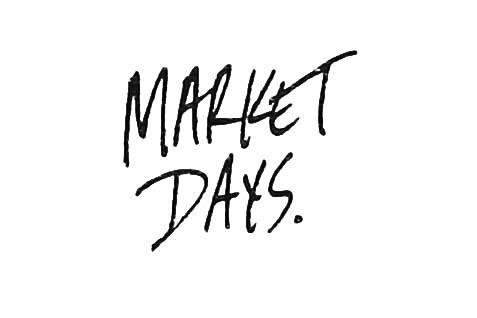 MARKET
DAYS.